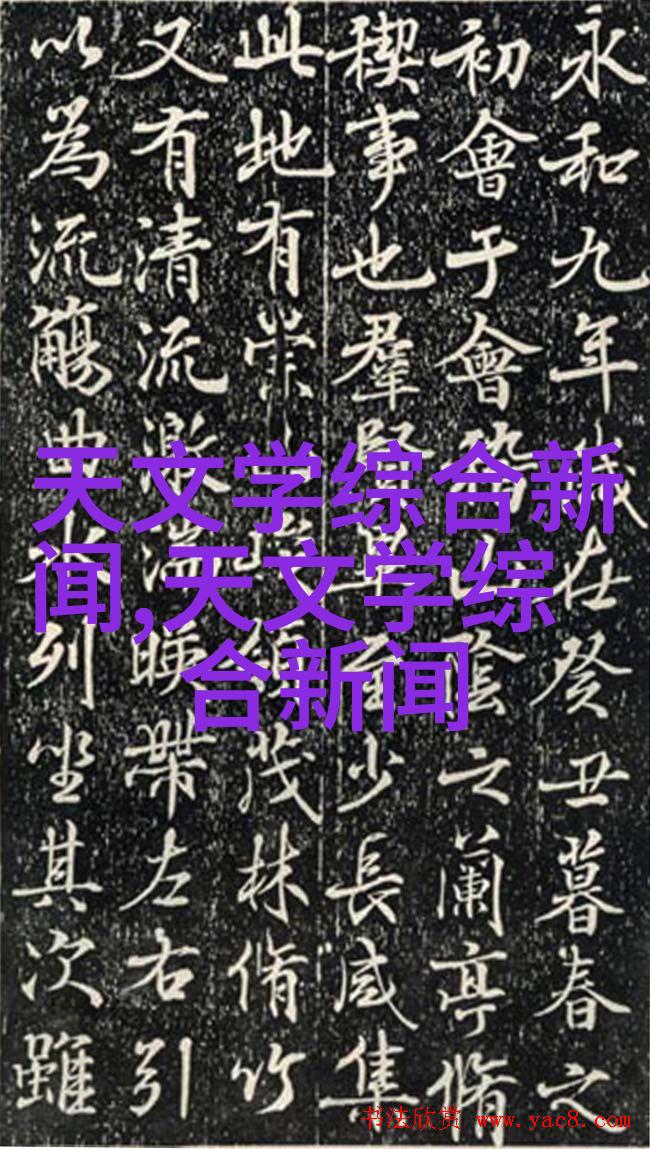 永和九年歲在癸丑暮春之
初會于會稽山陰之蘭亭脩
稧事也羣賢畢至少長咸集
此地有崇山峻領茂林脩竹
又有清流激湍暎帶左右引
以為流觴曲水列坐其次雖
天文学综合新
闻,天文学综
合新闻
书法欣赏 www.yac8.com